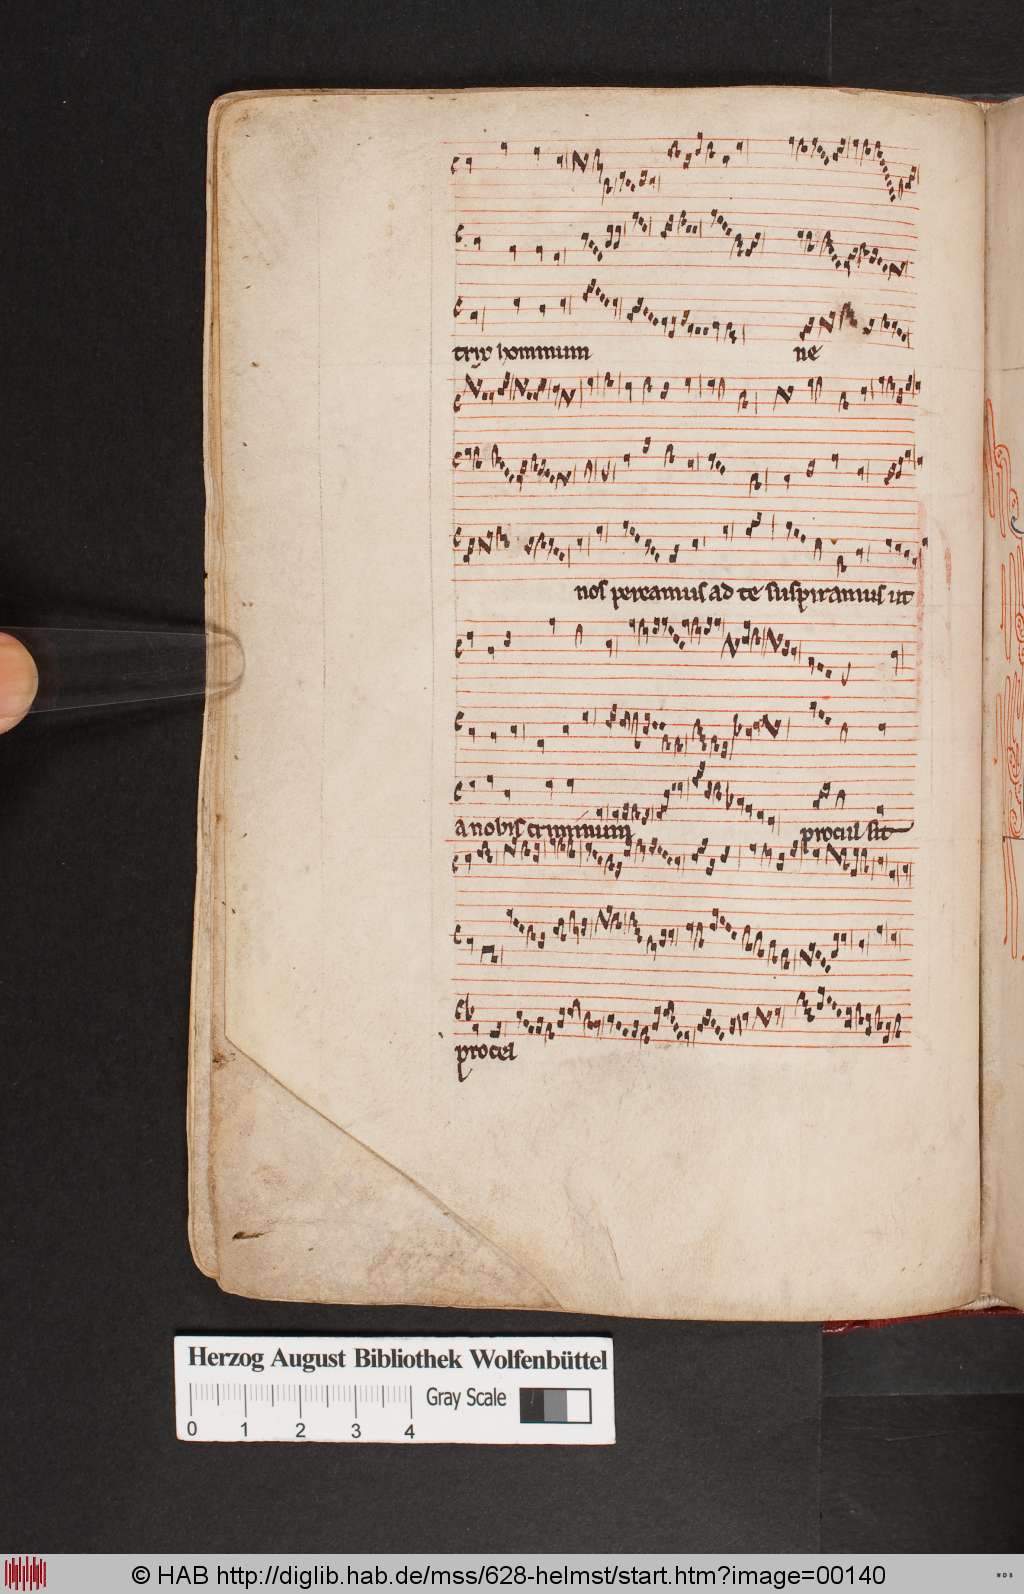 trix hominum ne
nos pereamus ad te suspiramus ut
a nobis criminum procul sit
procel
Herzog August Bibliothek Wolfenbüttel
Gray Scale
0 1 2 3 4
© HAB http://diglib.hab.de/mss/628-helmst/start.htm?image=00140